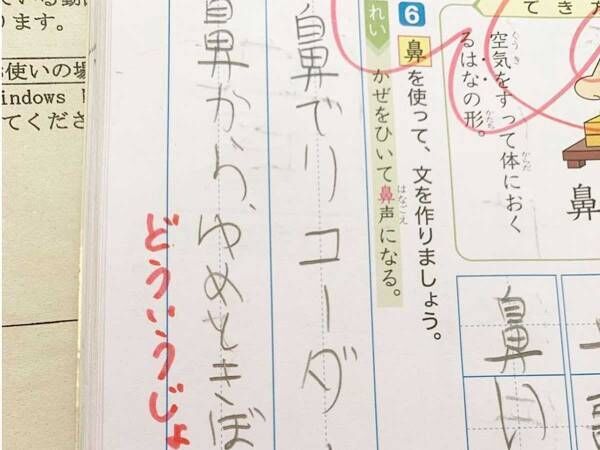 ります。
使いの場
indows
てくださ
て き 方
空気をすって体におく
くうき
からだ
るはなの形。
かたち
鼻
6
鼻を使って、文を作りましょう。
れい
かぜをひいて鼻声になる。
はなごえ
鼻でリコーダ
鼻から、ゆめときぼ
どういうじょ
鼻